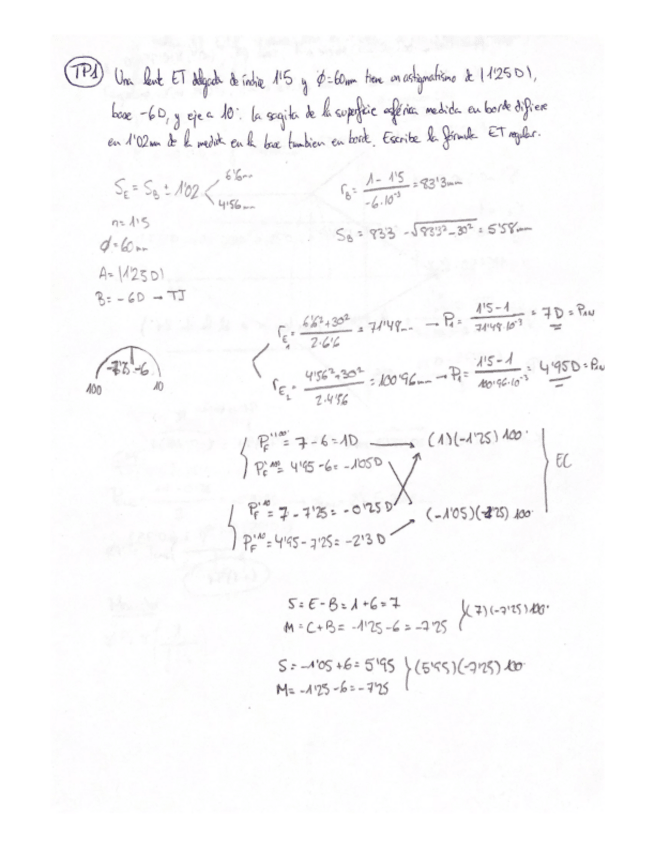 TP1 Una lente ET delgada de índice 1'5 y φ=60mm tiene un astigmatismo de |1'25D|,
base -6D, y eje a 10º. La sagita de la superficie esférica medida en borde difiere
en 1'02mm de la medida en la base tambien en borde. Escribe la fórmula ET regular.
S_E = S_B ± 1'02 < 6'6mm
4'56mm
r_B = (1 - 1'5)/(-6·10⁻³) = 83'3mm
n = 1'5
S_B = 83'3 - √(83'3² - 30²) = 5'58mm
φ = 60mm
A = |1'25D|
B = -6D → TJ
-7'25 -6
100 10
r_E₁ = (6'6² + 30²)/(2·6'6) = 71'48mm → P₁ = (1'5 - 1)/(71'48·10⁻³) = 7D = P₁N
r_E₂ = (4'56² + 30²)/(2·4'56) = 100'96mm → P₁ = (1'5 - 1)/(100'96·10⁻³) = 4'95D = P₁N
P_F'¹⁰⁰ = 7 - 6 = 1D → (1)(-1'25) 100º
P_F'¹⁰⁰ = 4'95 - 6 = -1'05D
EC
P_F'¹⁰ = 7 - 7'25 = -0'25D
(-1'05)(-1'25) 100º
P_F'¹⁰ = 4'95 - 7'25 = -2'3D
S = E - B = 1 + 6 = 7
(7)(-7'25) 100º
M = C + B = -1'25 - 6 = -7'25
S = -1'05 + 6 = 5'95
(5'95)(-7'25) 100
M = -1'25 - 6 = -7'25